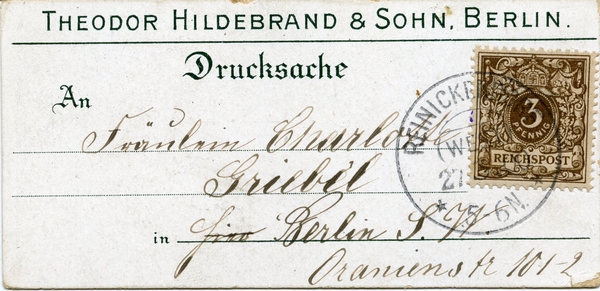 THEODOR HILDEBRAND & SOHN, BERLIN.
Drucksache
An
Fräulein Charlotte
Griebel
in hier Berlin S. W.
Oranienstr 101-2
REINICKENDORF
(WEST)
27
* 5-6N. *
3
PFENNIG
REICHSPOST